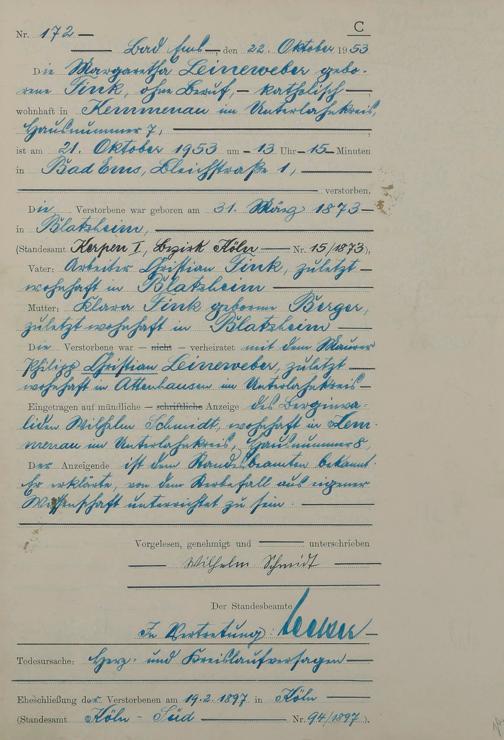 C
Nr. 172
Bad Ems, den 22. Oktober 1953
Die Margaretha Leineweber gebo-
rene Fink, ohne Beruf, - katholisch
wohnhaft in Kemmenau im Unterlahnkreis,
Hausnummer 7,
ist am 21. Oktober 1953 um 13 Uhr 15 Minuten
in Bad Ems, Bleichstraße 1,
verstorben.
Die Verstorbene war geboren am 31. März 1873
in Blatzheim,
(Standesamt Kerpen I, Bezirk Köln Nr. 15/1873),
Vater: Arbeiter Christian Fink, zuletzt
wohnhaft in Blatzheim
Mutter: Klara Fink geborene Berger,
zuletzt wohnhaft in Blatzheim
Die Verstorbene war - nicht - verheiratet mit dem Maurer
Philipp Christian Leineweber, zuletzt
wohnhaft in Attenhausen im Unterlahnkreis
Eingetragen auf mündliche - schriftliche Anzeige des Berginva-
liden Wilhelm Schmidt, wohnhaft in Kem-
menau im Unterlahnkreis, Hausnummer 8.
Der Anzeigende ist dem Standesbeamten bekannt.
Er erklärte, von dem Sterbefall aus eigener
Wissenschaft unterrichtet zu sein.
Vorgelesen, genehmigt und unterschrieben
Wilhelm Schmidt
Der Standesbeamte
In Vertretung:
Todesursache: Herz- und Kreislaufversagen
Eheschließung der Verstorbenen am 19.2.1897 in Köln
(Standesamt Köln - Süd Nr. 94/1897.).